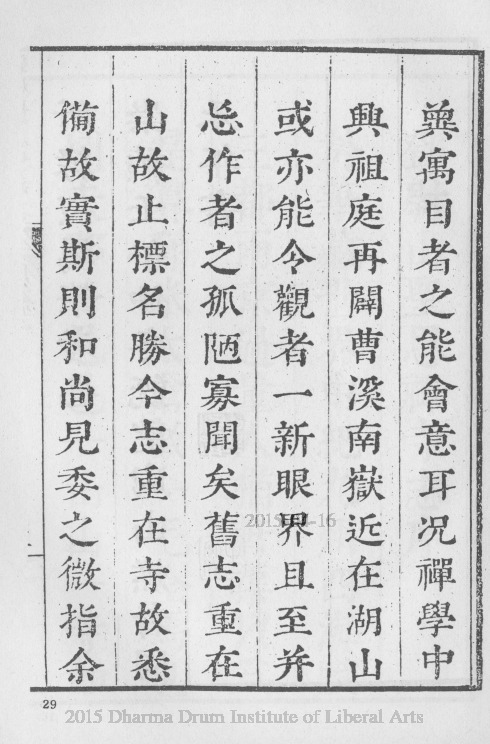 冀寓目者之能會意耳况禪學中
興祖庭再闢曹溪南嶽近在湖山
或亦能令觀者一新眼界且至并
忘作者之孤陋寡聞矣舊志重在
山故止標名勝今志重在寺故悉
備故實斯則和尚見委之微指余
29
2015 Dharma Drum Institute of Liberal Arts